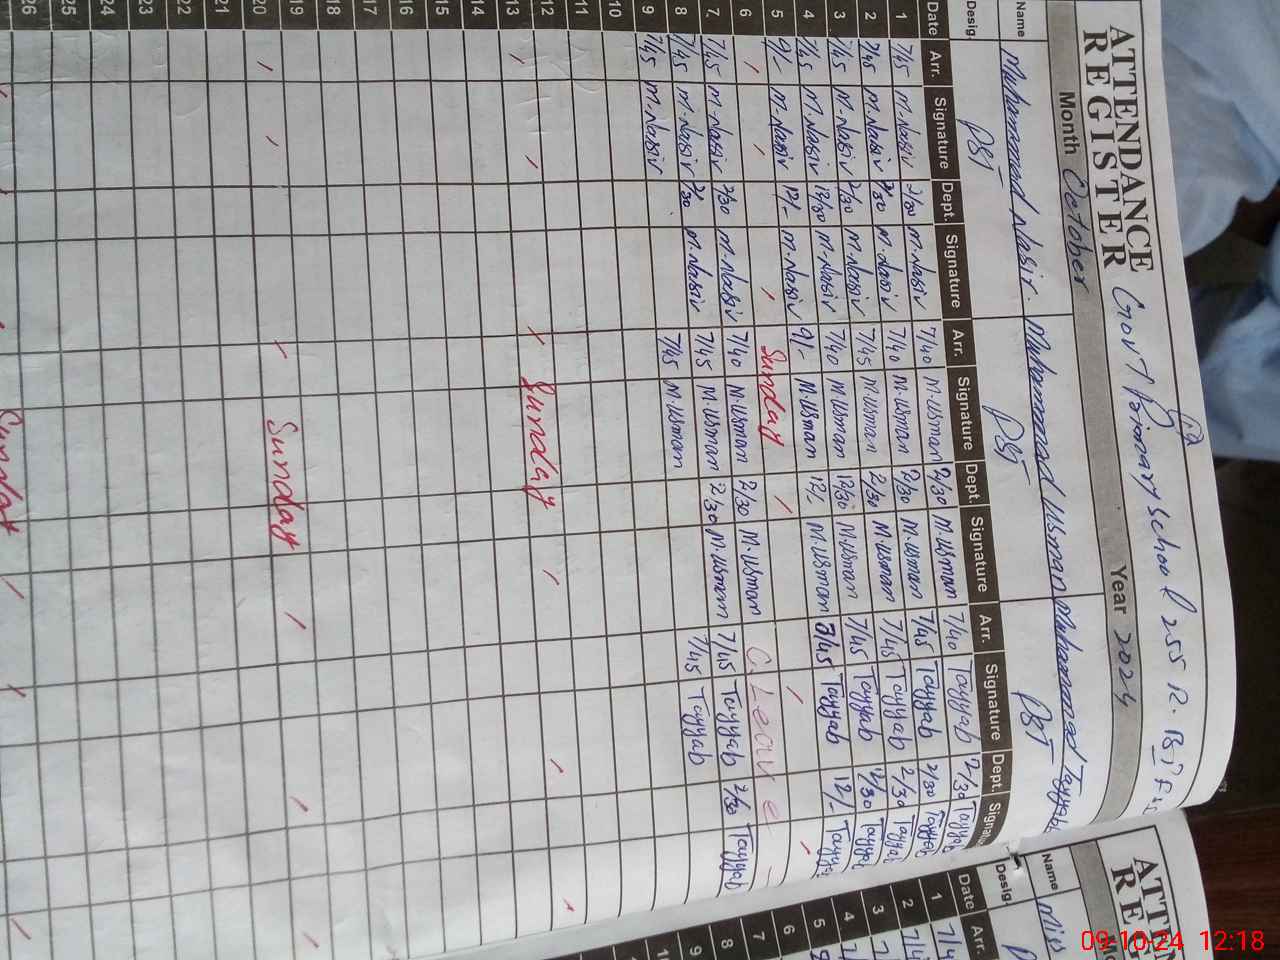 Govt Primary School 255 R.B
ATTENDANCE
REGISTER
Month October Year 2024
Name Muhammad Nasir. Muhammad Usman Muhammad Tayyab
Desig. PST PST PST
Date Arr. Signature Dept. Signature Arr. Signature Dept. Signature Arr. Signature Dept. Signatu
1 7/45 M.Nasir 2/30 M.Nasir 7/40 M.Usman 2/30 M.Usman 7/40 Tayyab 2/30 Tayyab
2 7/45 M.Nasir 2/30 M.Nasir 7/40 M.Usman 2/30 M.Usman 7/45 Tayyab 2/30 Tayyab
3 7/45 M.Nasir 2/30 M.Nasir 7/45 M.Usman 2/30 M.Usman 7/45 Tayyab 2/30 Tayyab
4 7/45 M.Nasir 12/30 M.Nasir 7/40 M.Usman 12/30 M.Usman 7/45 Tayyab 12/30 Tayyab
5 9/- M.Nasir 12/- M.Nasir 9/- M.Usman 12/- M.Usman 7/45 Tayyab 12/- Tayyab
6 Sunday
7 7/45 M.Nasir 2/30 M.Nasir 7/40 M.Usman 2/30 M.Usman C.Leave
8 7/45 M.Nasir 2/30 M.Nasir 7/45 M.Usman 2/30 M.Usman 7/45 Tayyab 2/30 Tayyab
9 7/45 M.Nasir 7/45 M.Usman 7/45 Tayyab
10
11
12
13 Sunday
14
15
16
17
18
19
20 Sunday
21
22
23
24
25
26
Sunday
ATTEN
REG
Mo
Name Miss
Desig.
Date Arr.
1 7/4
2 7/4
3 7
4 7
5
6
7
8
9
09-10-24 12:18